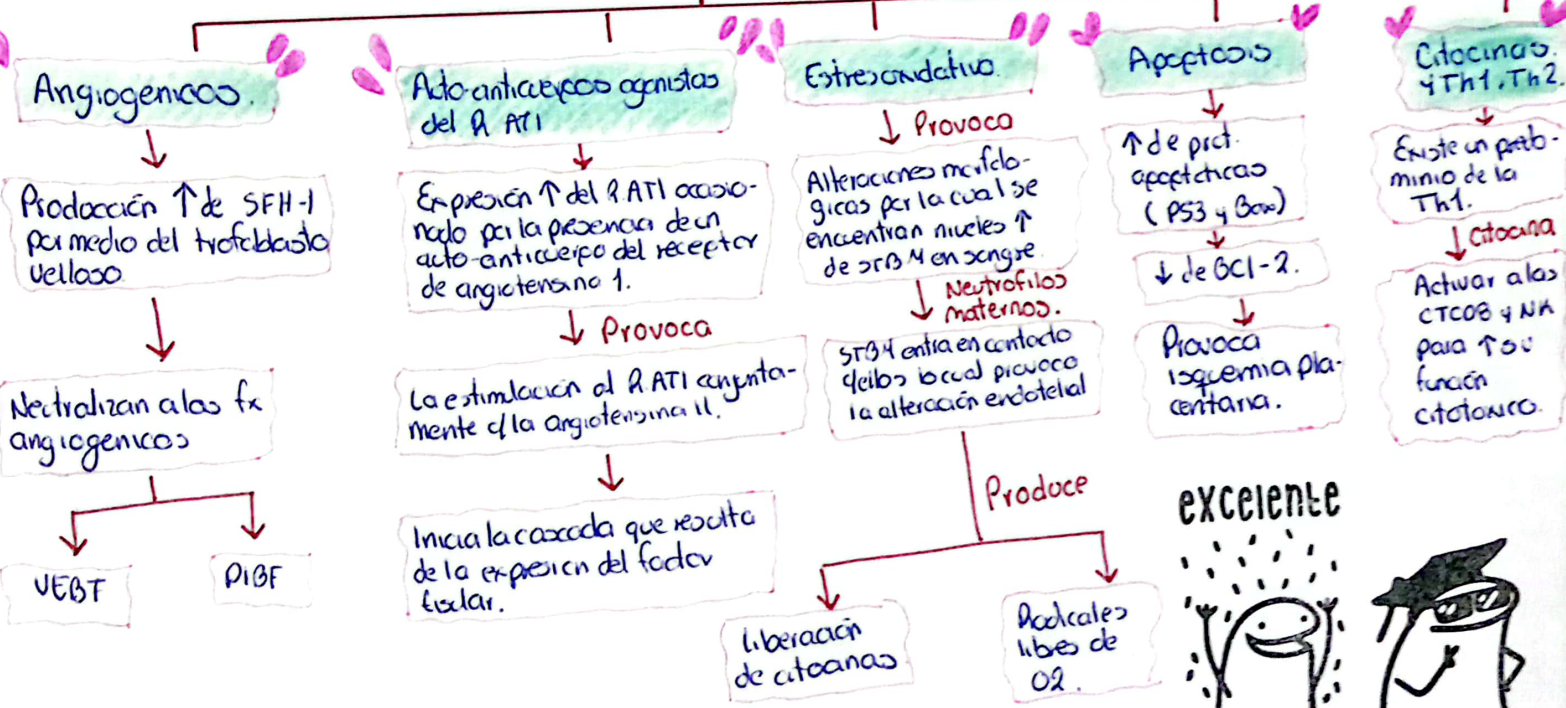 Angiogenicos.
Producción ↑ de SFH-1
por medio del trofoblasto
velloso.
Neutralizan a las fx
angiogenicos
VEBT
PIBF
Auto-anticuerpos agonistas
del R AT1
Expresión ↑ del R.AT1 ocasio-
nado por la presencia de un
auto-anticuerpo del receptor
de angiotensina 1.
Provoca
La estimulación al R.AT1 conjunta-
mente c/la angiotensina II.
Inicia la cascada que resulta
de la expresión del factor
tisular.
Estres oxidativo.
Provoca
Alteraciones morfolo-
gicas por la cual se
encuentran niveles ↑
de STBM en sangre.
Neutrofilos
maternos.
STBM entra en contacto
c/ellos lo cual provoca
la alteración endotelial
Produce
liberación
de citocinas
Radicales
libres de
O2.
Apoptosis
↑ de prot.
apoptoticas
(P53 y Bax)
↓ de BCl-2.
Provoca
isquemia pla-
centaria.
Citocinas
y Th1, Th2
Existe un predo-
minio de la
Th1.
Citocina
Activar a las
CTCD8 y NK
para ↑ su
función
citotoxica.
excelente